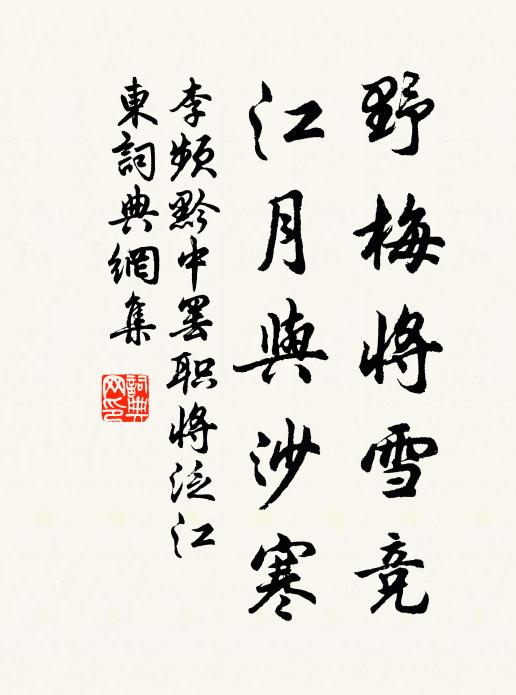 野梅將雪競
江月與沙寒
李頻黔中罢职將泛江
東詞典網集
詞典
网印